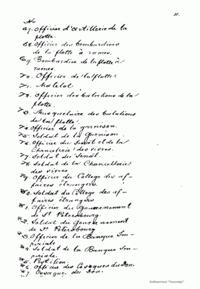 No
67. Officier d'Artillerie de la
flotte.
68. Officier des bombardiers
de la flotte à rames.
69. Bombardier de la flotte à
rames.
70. Officier de la flotte
71. Matelot.
72. Officier des bataillons de la
flotte.
73. Mousquetaire des bataillons
de la flotte.
74. Officier de la garnison.
75. Soldat de la Garnison.
76. Officier du Sénat et de la
Chancellerie des
77. Soldat du Sénat.
78. Soldat de la Chancellerie
des
79. Officier du Collège des af-
faires étrangères
80. Soldat du Collège des af-
faires étrangères
81. Officier du Gouvernement
de St Pétersbourg.
82. Soldat du Gouvernement
de St Pétersbourg.
83. Officier de la Banque Im-
périale
84. Soldat de la Banque Im-
périale.
85. Postillon.
86. Officier des Cosaques du Don.
87. Cosaque du Don.